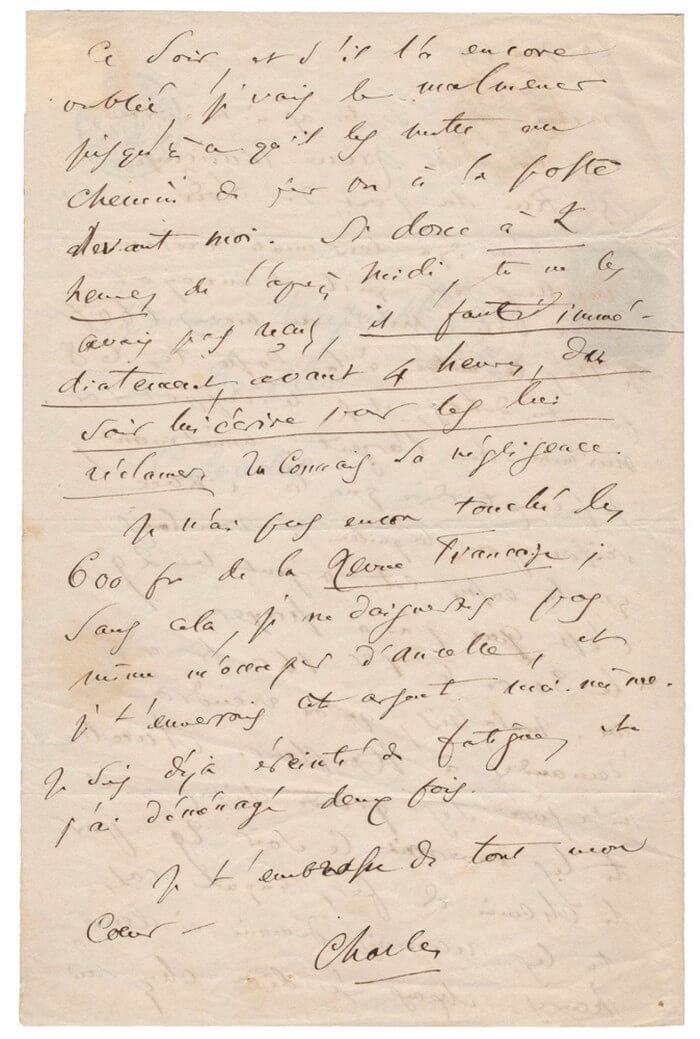 Ce soir, et s'il l'a encore
oublié, je vais le malmener
jusqu'à ce qu'il les mette au
chemin de fer ou à la poste
devant moi. Si donc à 2
heures de l'après midi, tu ne les
avais pas reçus, il faut immé-
diatement, avant 4 heures, du
soir lui écrire pour les lui
réclamer. Tu connais sa négligence.
Je n'ai pas encore touché les
600 fr de la Revue Française ;
sans cela, je ne daignerais pas
même m'occuper d'Ancelle, et
je t'enverrais cet argent moi-même.
Je suis déjà éreinté de fatigue, et
j'ai déménagé deux fois.
Je t'embrasse de tout mon
Cœur —
Charles